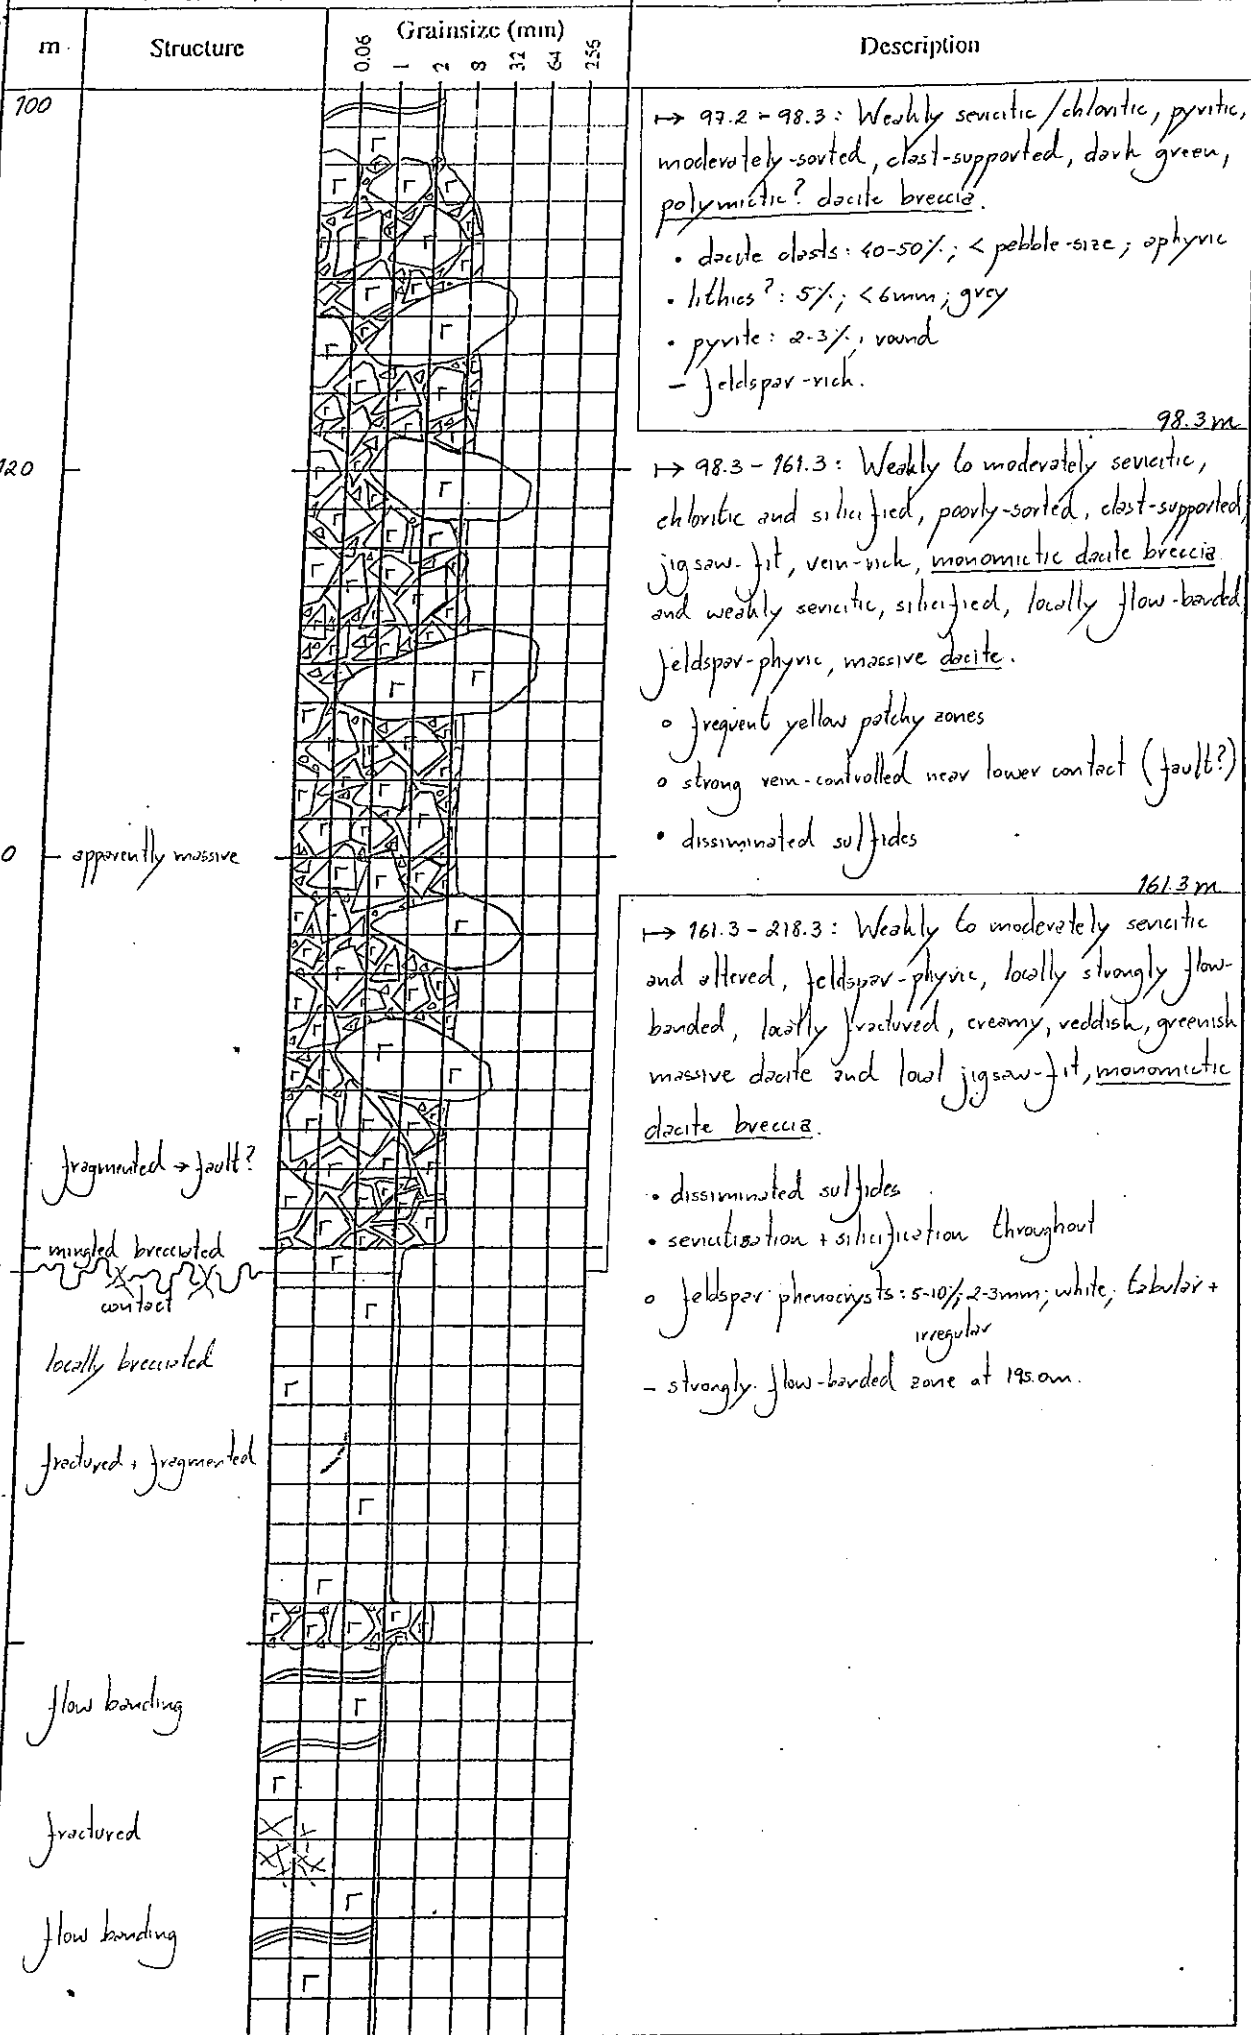 m Structure Grainsize (mm) Description
0.06 1 2 8 32 64 256
100
120
0
apparently massive
fragmented → fault?
mingled brecciated
contact
locally brecciated
fractured + fragmented
flow banding
fractured
flow banding
↦ 97.2 - 98.3: Weakly sericitic/chloritic, pyritic,
moderately-sorted, clast-supported, dark green,
polymictic? dacite breccia.
• dacite clasts: 40-50%; < pebble-size; aphyric
• lithics?: 5%; <6mm; grey
• pyrite: 2-3%, round
- feldspar-rich.
98.3m
↦ 98.3 - 161.3: Weakly to moderately sericitic,
chloritic and silicified, poorly-sorted, clast-supported,
jigsaw-fit, vein-rich, monomictic dacite breccia
and weakly sericitic, silicified, locally flow-banded,
feldspar-phyric, massive dacite.
o frequent yellow patchy zones
o strong vein-controlled near lower contact (fault?)
• dissiminated sulfides
161.3m
↦ 161.3 - 218.3: Weakly to moderately sericitic
and altered, feldspar-phyric, locally strongly flow-
banded, locally fractured, creamy, reddish, greenish
massive dacite and local jigsaw-fit, monomictic
dacite breccia.
• dissiminated sulfides
• sericitisation + silicification throughout
o feldspar phenocrysts: 5-10%; 2-3mm; white; tabular +
irregular
- strongly flow-banded zone at 195.0m.